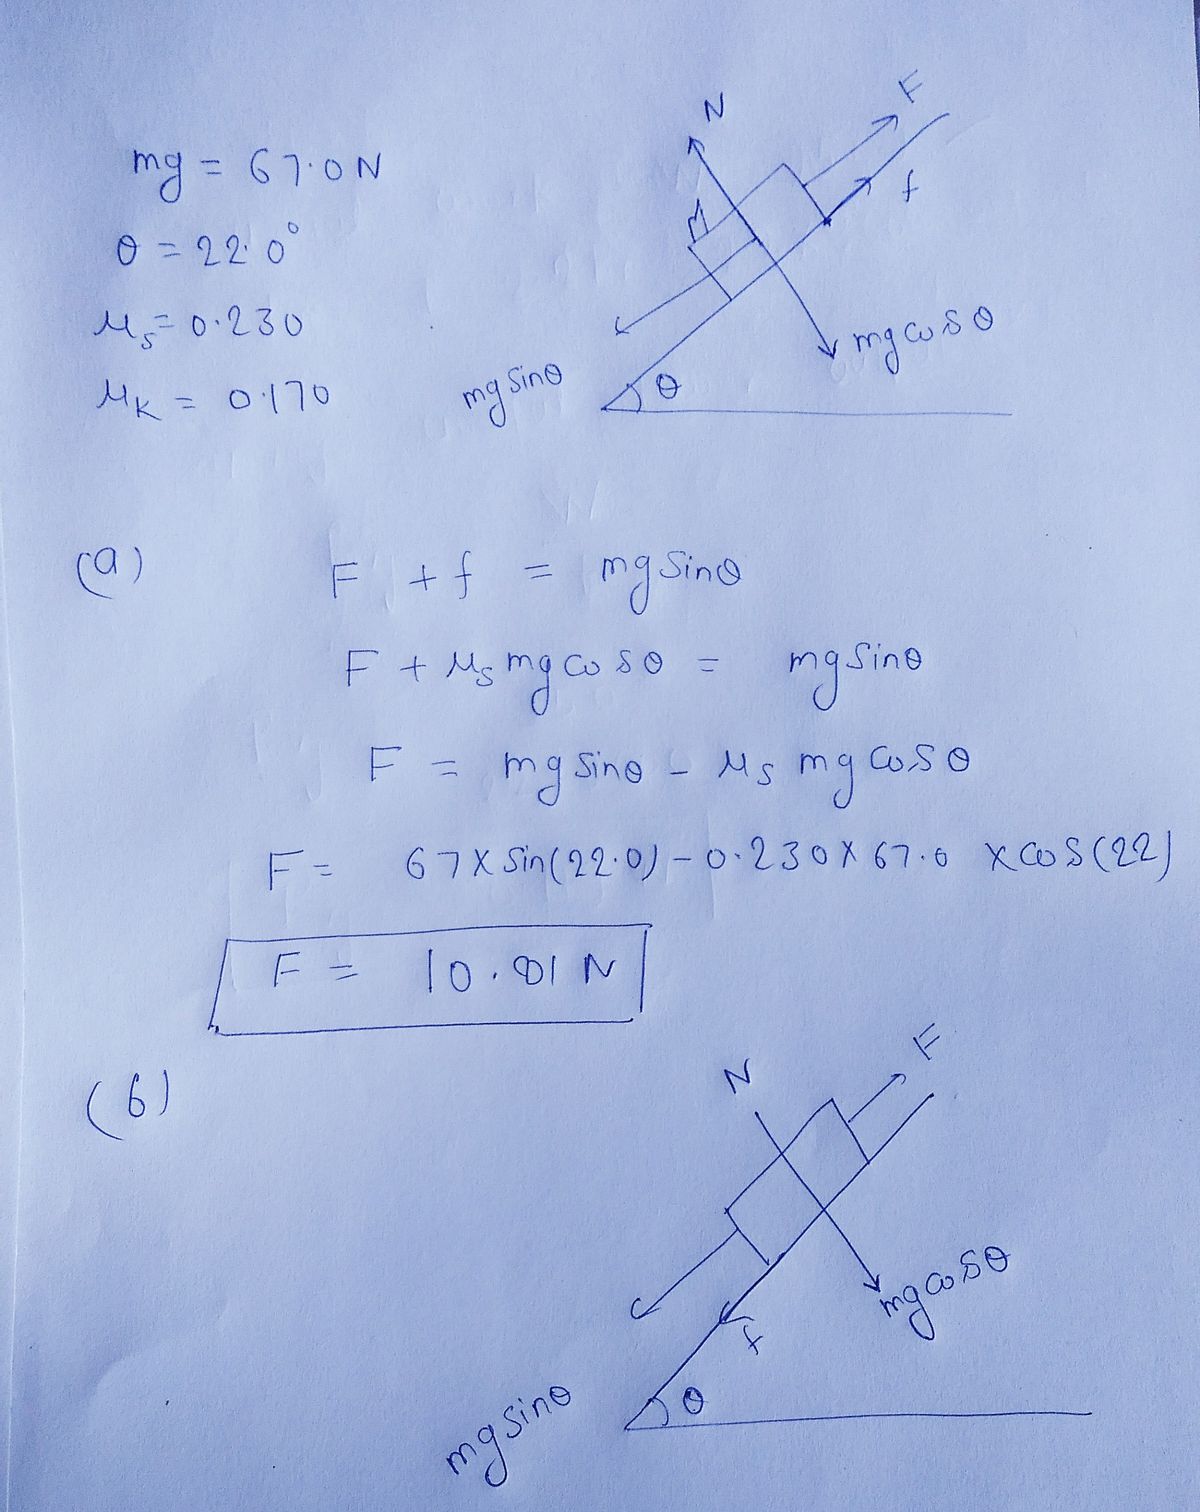 mg = 67.0 N
θ = 22.0°
μs = 0.230
μK = 0.170
N
F
M
f
mg sinθ
θ
mg cosθ
(a)
F + f = mg sinθ
F + μs mg cosθ = mg sinθ
F = mg sinθ - μs mg cosθ
F = 67 x sin(22.0) - 0.230 x 67.0 x cos(22)
F = 10.81 N
(b)
N
F
mg cosθ
f
θ
mg sinθ